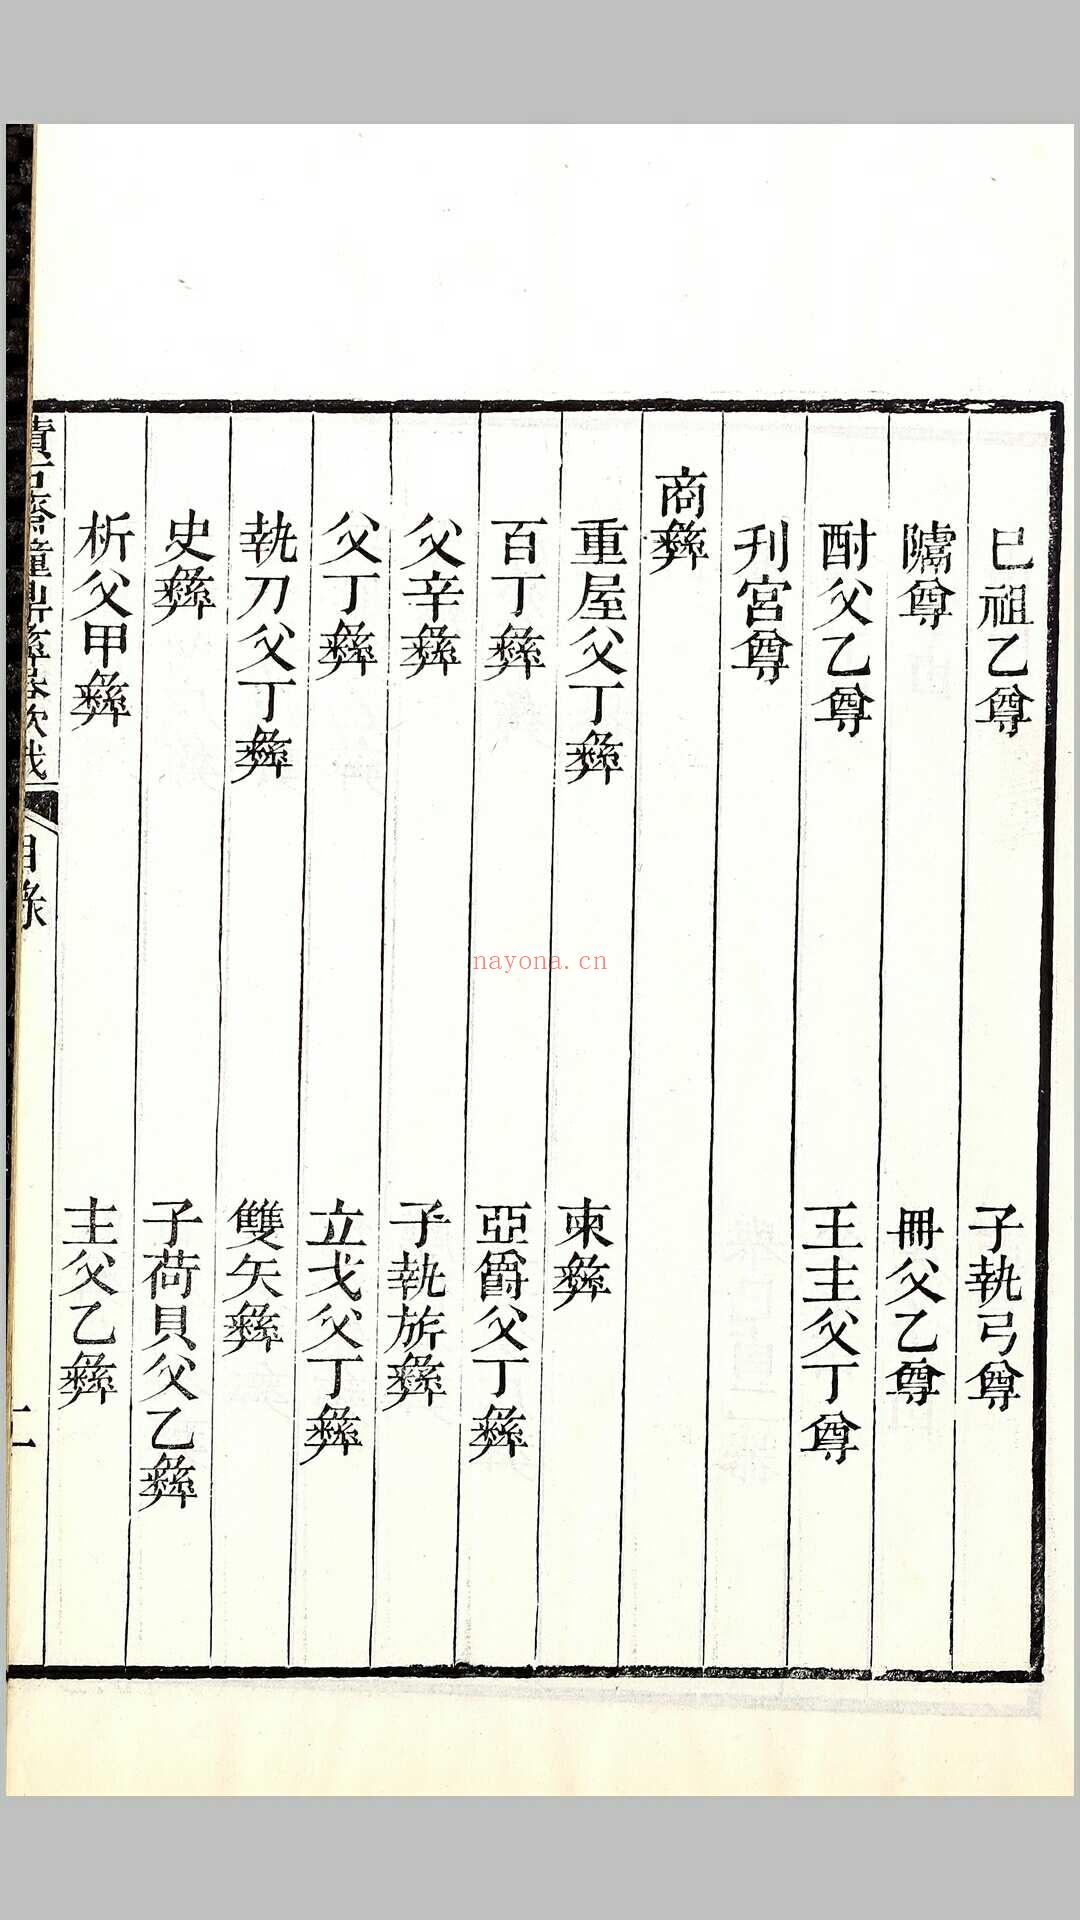 巳祖乙尊　子執弓尊
䧅尊　冊父乙尊
酎父乙尊　王主父丁尊
刋宮尊
商彝
重屋父丁彝　柬彝
百丁彝　亞爵父丁彝
父辛彝　子執旂彝
父丁彝　立戈父丁彝
執刀父丁彝　雙矢彝
史彝　子荷貝父乙彝
析父甲彝　主父乙彝
積古齋鐘鼎彝器款識
目錄
nayona.cn